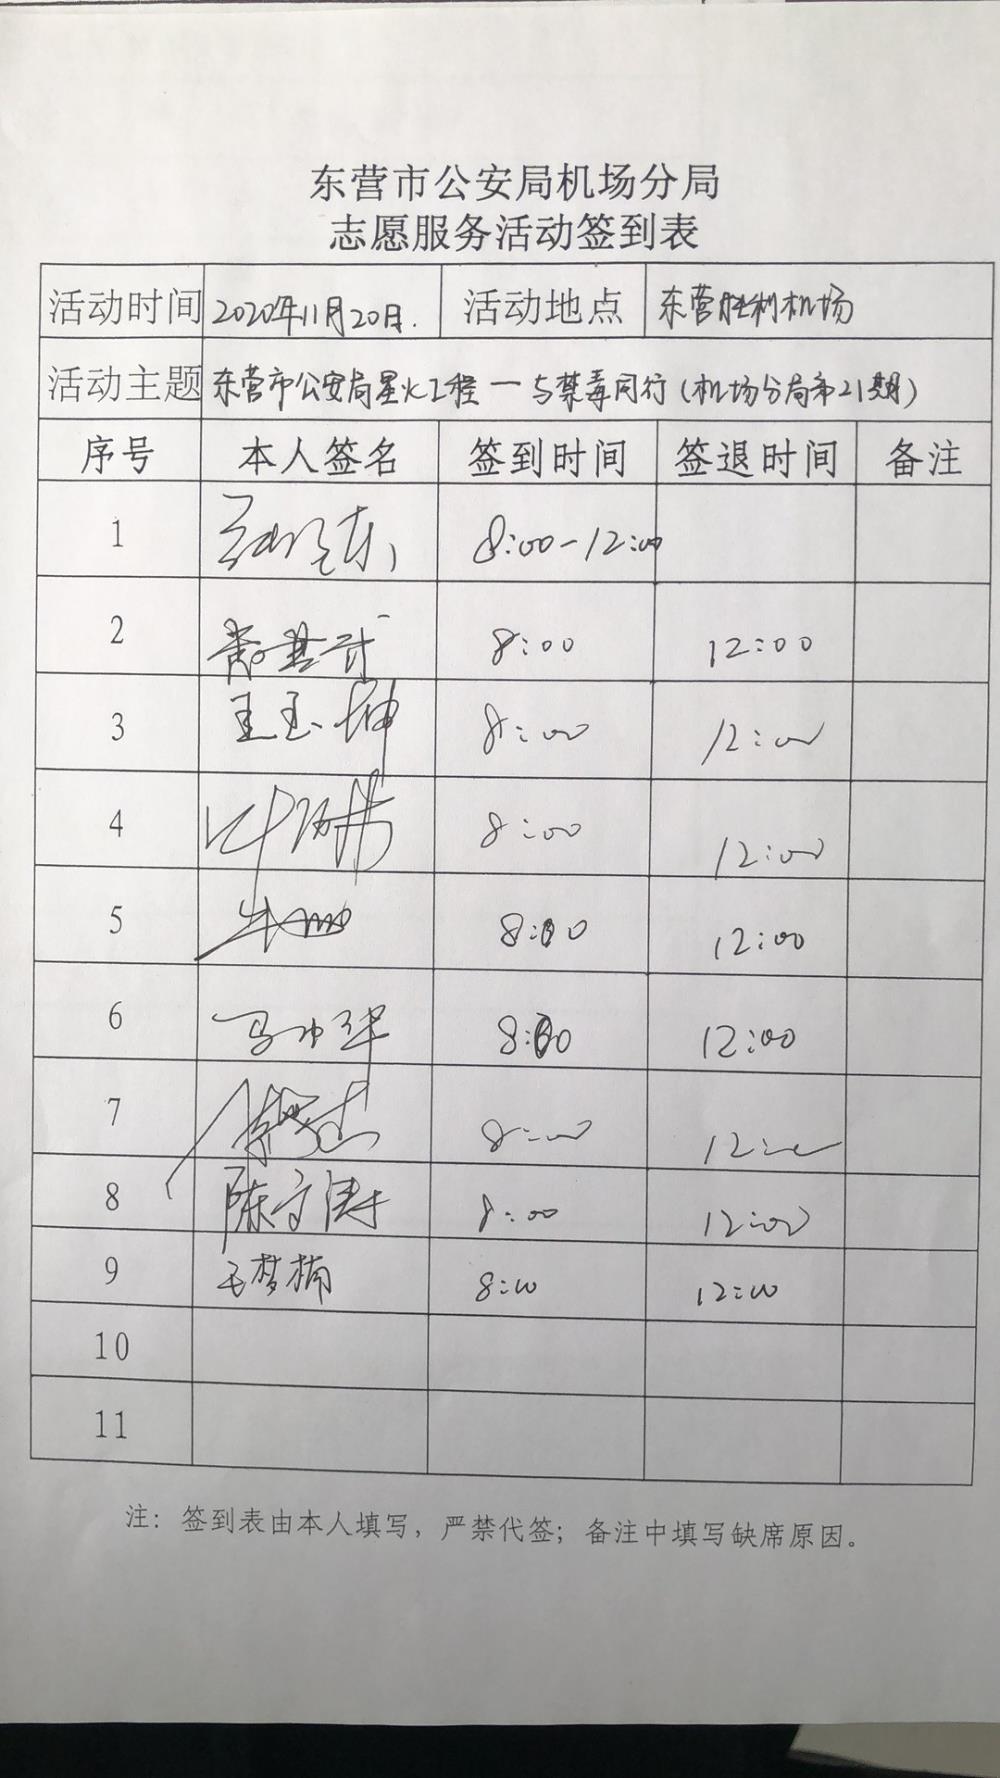 东营市公安局机场分局
志愿服务活动签到表
活动时间 2020年11月20日. 活动地点 东营胜利机场
活动主题 东营市公安局星火工程一与禁毒同行(机场分局第21期)
序号 本人签名 签到时间 签退时间 备注
1 8:00-12:00
2 8:00 12:00
3 王玉坤 8:00 12:00
4 8:00 12:00
5 8:00 12:00
6 8:00 12:00
7 8:00 12:00
8 陈守涛 8:00 12:00
9 王梦楠 8:00 12:00
10
11
注：签到表由本人填写，严禁代签；备注中填写缺席原因。